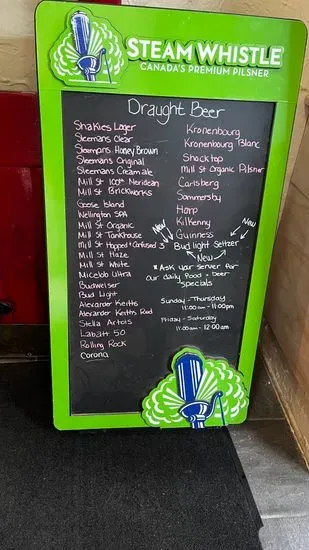 STEAM WHISTLE
CANADA'S PREMIUM PILSNER
Draught Beer
Shakies Lager
Sleemans Clear
Sleemans Honey Brown
Sleemans Original
Sleemans Cream ale
Mill St 100th Meridean
Mill St Brickworks
Goose Island
Wellington SPA
Mill St Organic
Mill St Tankhouse
Mill St Hopped & Confused
Mill St Haze
Mill St White
Micelob Ultra
Budweiser
Bud Light
Alexander Keiths
Alexander Keiths Red
Stella Artois
Labatt 50
Rolling Rock
Corona
Kronenbourg
Kronenbourg Blanc
Shocktop
Mill St Organic Pilsner
Carlsberg
Sommersby
Harp
Kilkenny
Guinness
New
New
Bud light Seltzer
New
*Ask your server for
our daily food + beer
specials
Sunday - Thursday
11:00am - 11:00pm
Friday - Saturday
11:00am - 12:00am